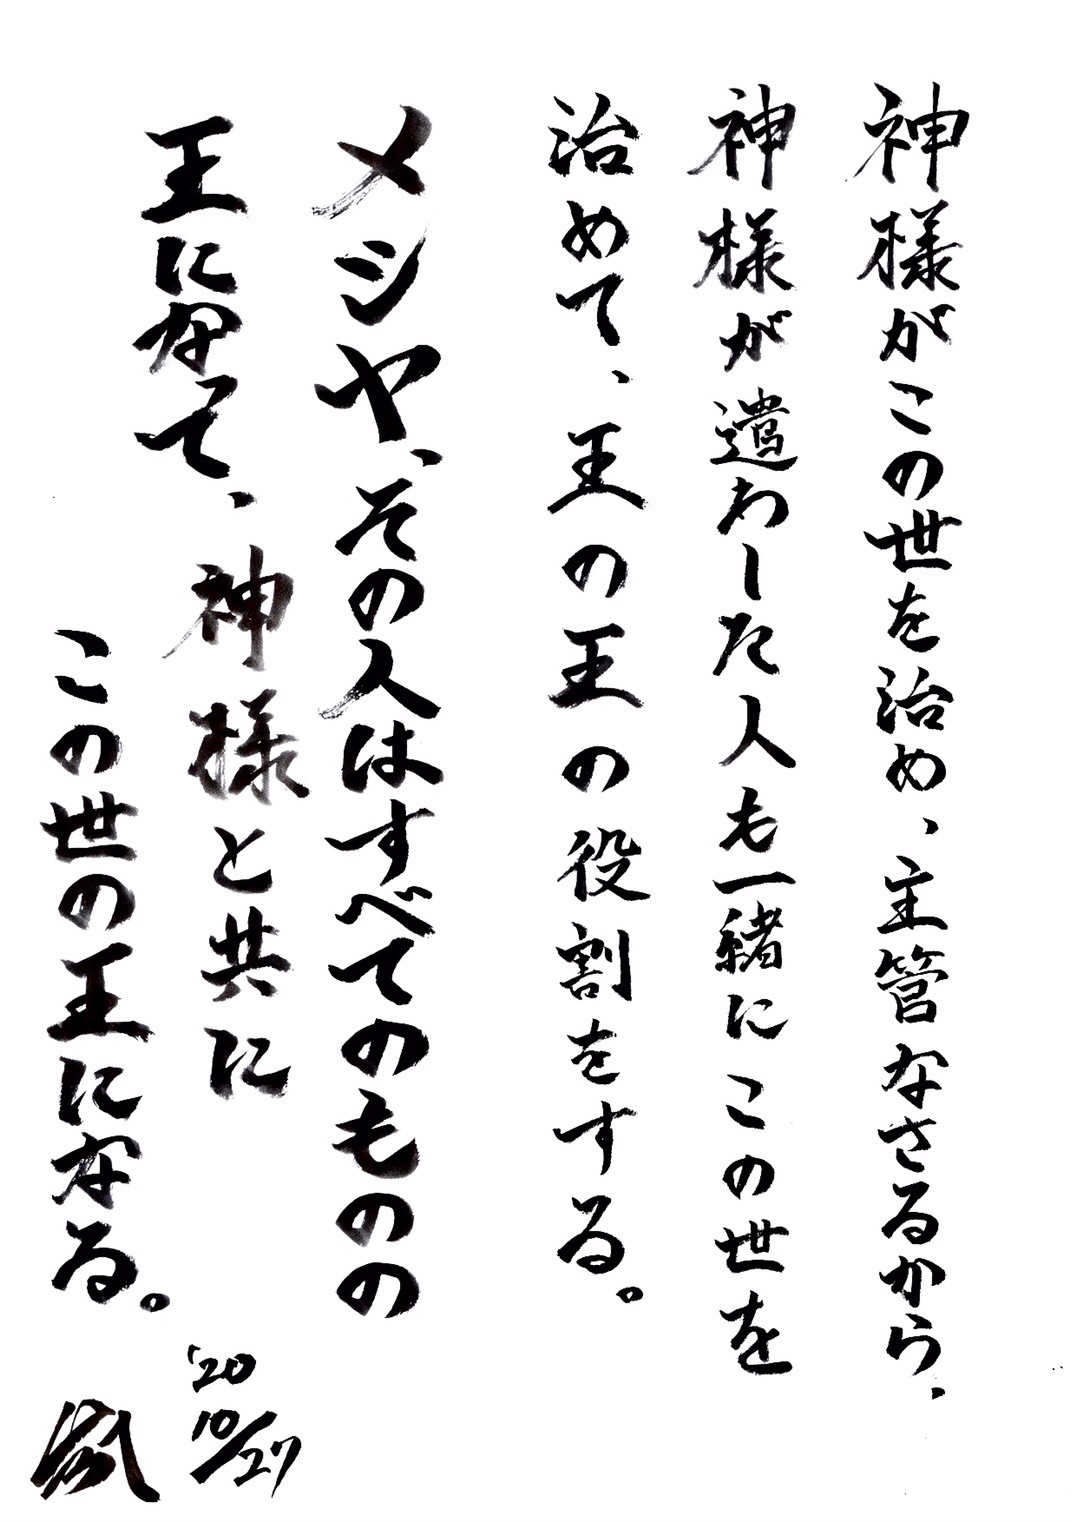 神様がこの世を治め、主管なさるから、
神様が遣わした人も一緒にこの世を
治めて、王の王の役割をする。
メシヤ、その人はすべてのものの
王になって、神様と共に
この世の王になる。
'20
10/27